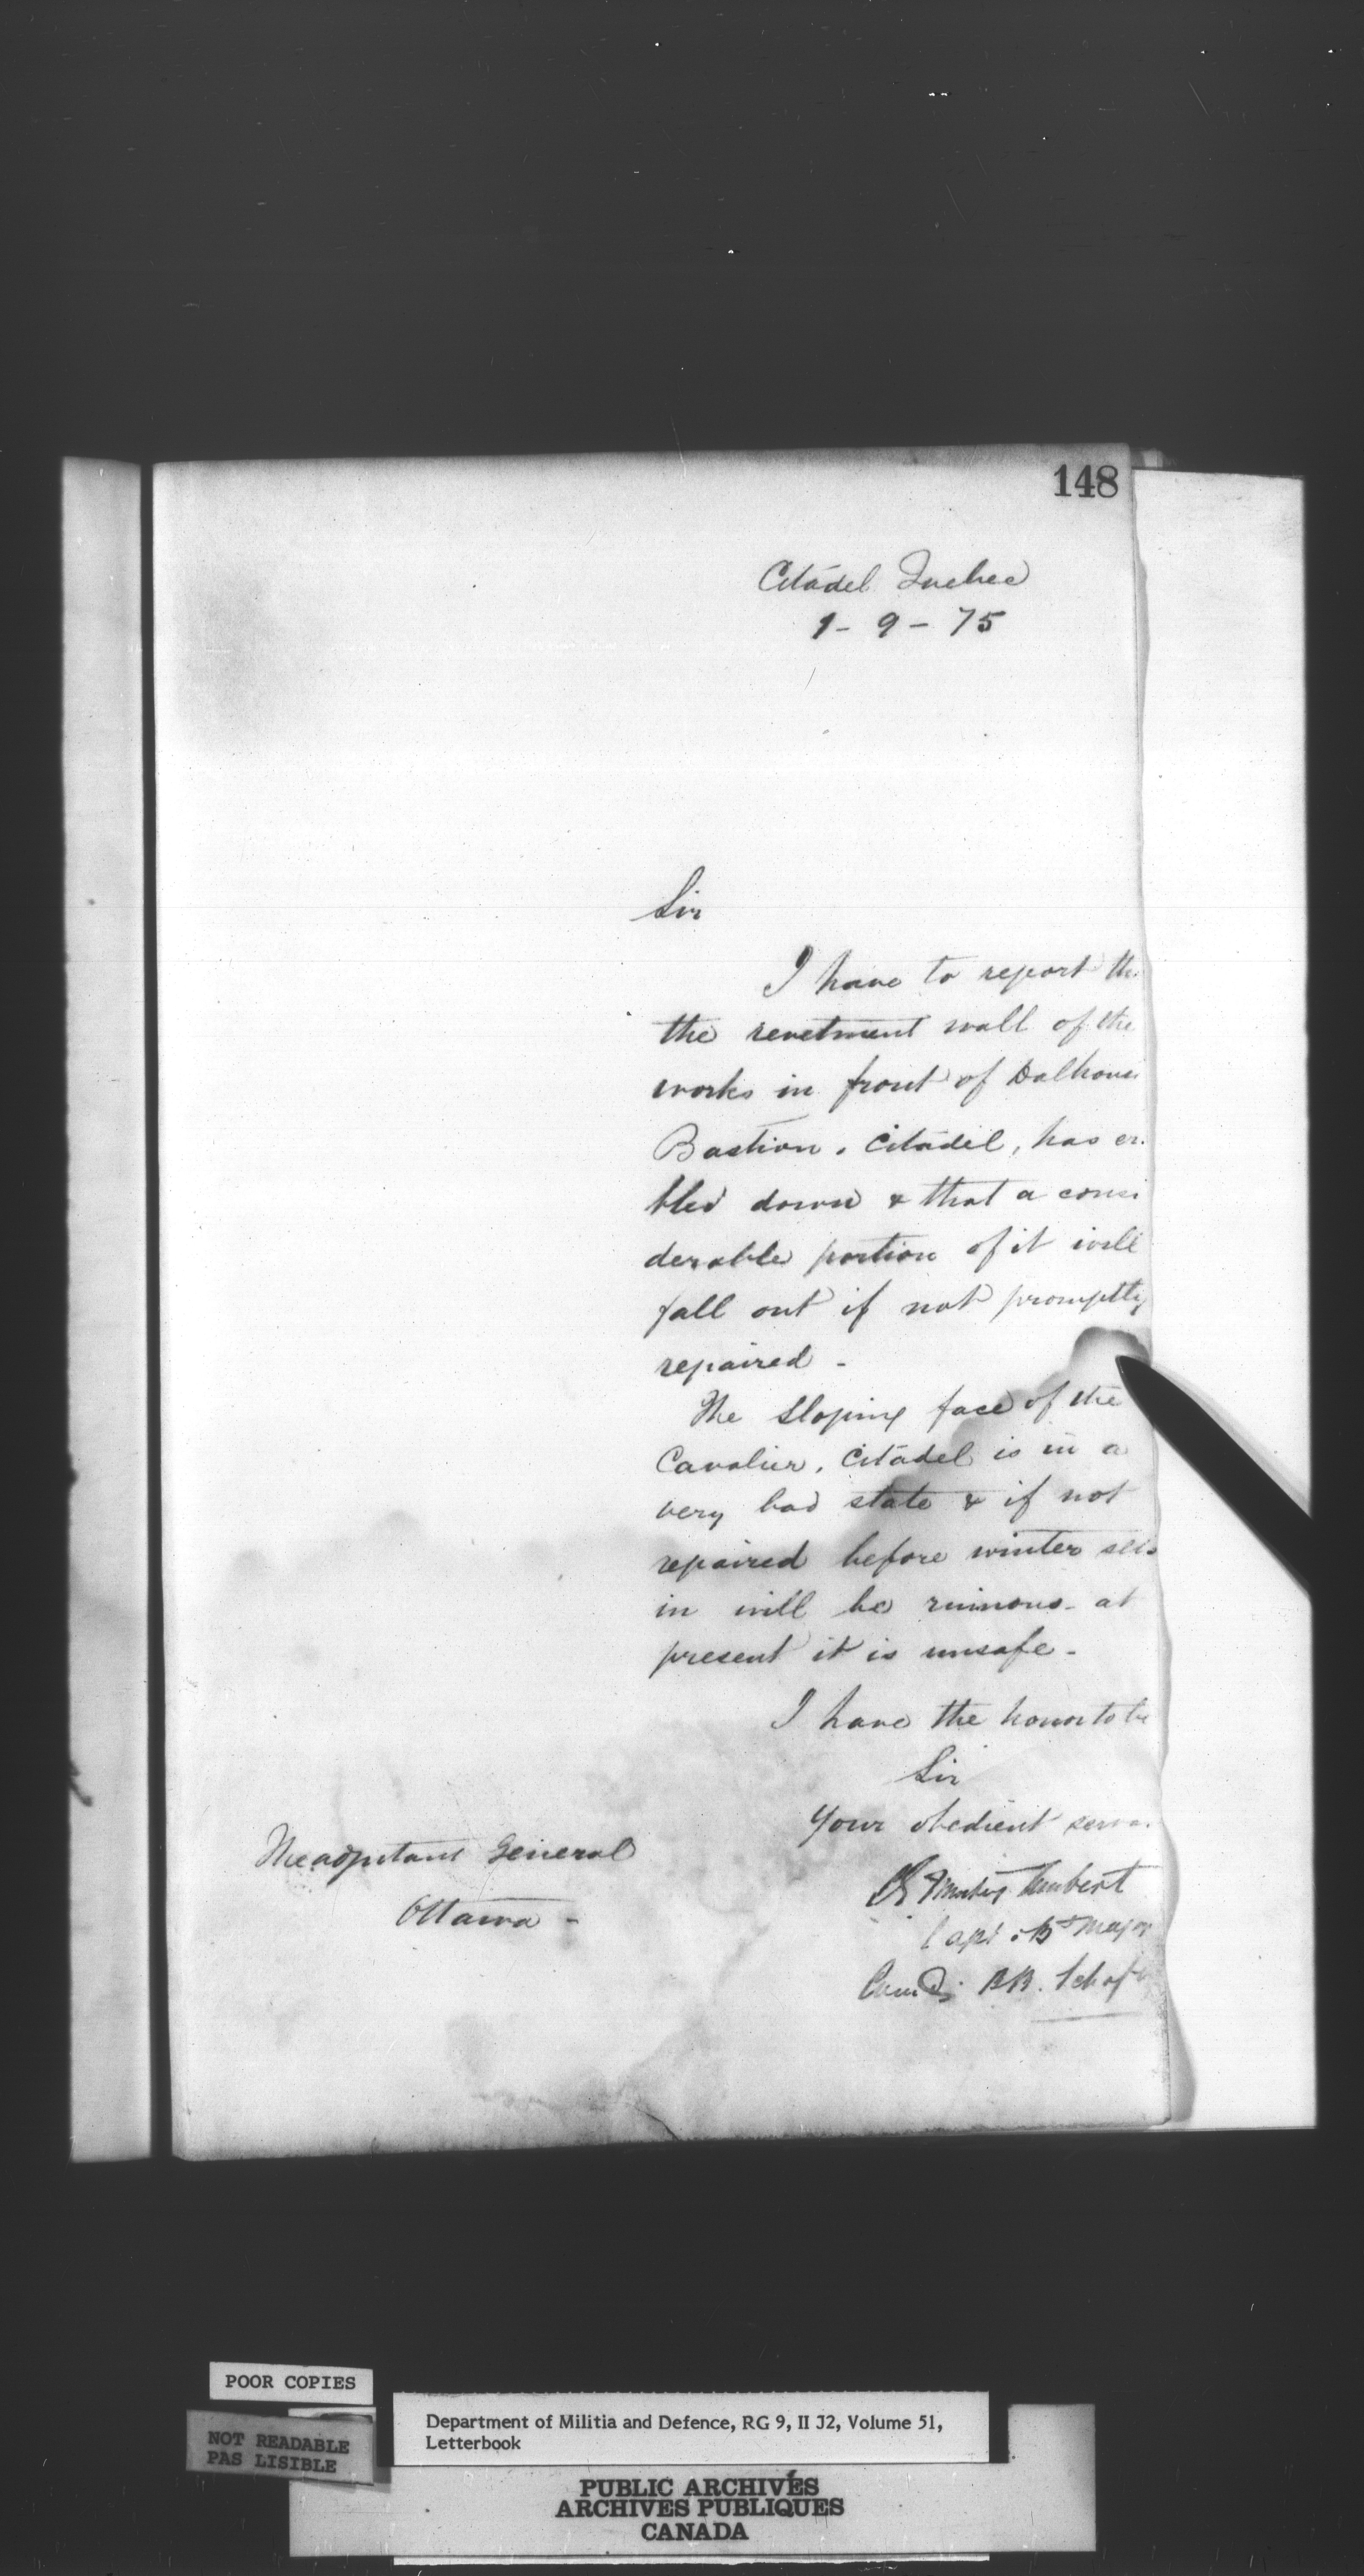 148
Citadel Quebec
1 - 9 - 75
Sir
I have to report th
the revetment wall of the
works in front of Dalhousi
Bastion, Citadel, has cr
bled down & that a consi
derable portion of it will
fall out if not promptly
repaired -
The sloping face of the
Cavalier, Citadel is in a
very bad state & if not
repaired before winter sets
in will be ruinous - at
present it is unsafe -
I have the honor to be
Sir
Your obedient serva
Capt Bt Major
Comdg BB. Schof
The adjutant General
Ottawa -
POOR COPIES
NOT READABLE
PAS LISIBLE
Department of Militia and Defence, RG 9, II J2, Volume 51,
Letterbook
PUBLIC ARCHIVES
ARCHIVES PUBLIQUES
CANADA